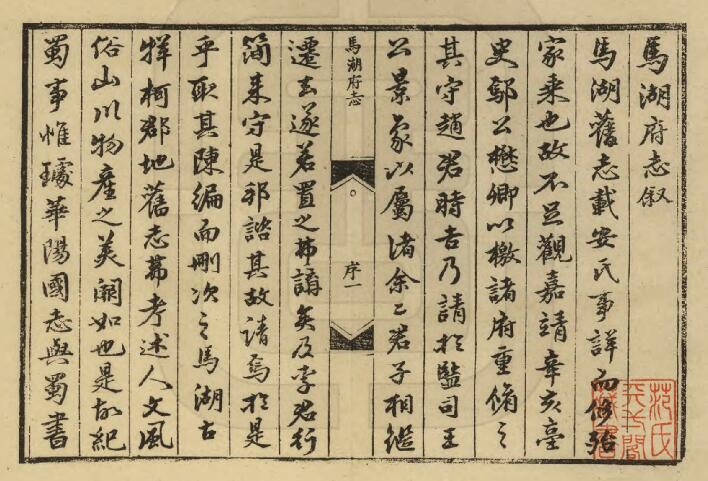 馬湖府志叙
馬湖舊志載安氏事詳而脩殆
家乘也故不足觀嘉靖辛亥臺
史鄢公懋卿以檄諸府重脩之
其守趙君時吉乃請於監司王
公景象以屬渚余二君子相繼
馬湖府志
序一
遷去遂若置之弗講矣及李君行
簡來守是邦諮其故請焉於是
乎取其陳編而刪次之馬湖古
牂柯郡地舊志弗考述人文風
俗山川物產之美闕如也是故紀
蜀事惟璩華陽國志與蜀書
范氏天一閣藏書